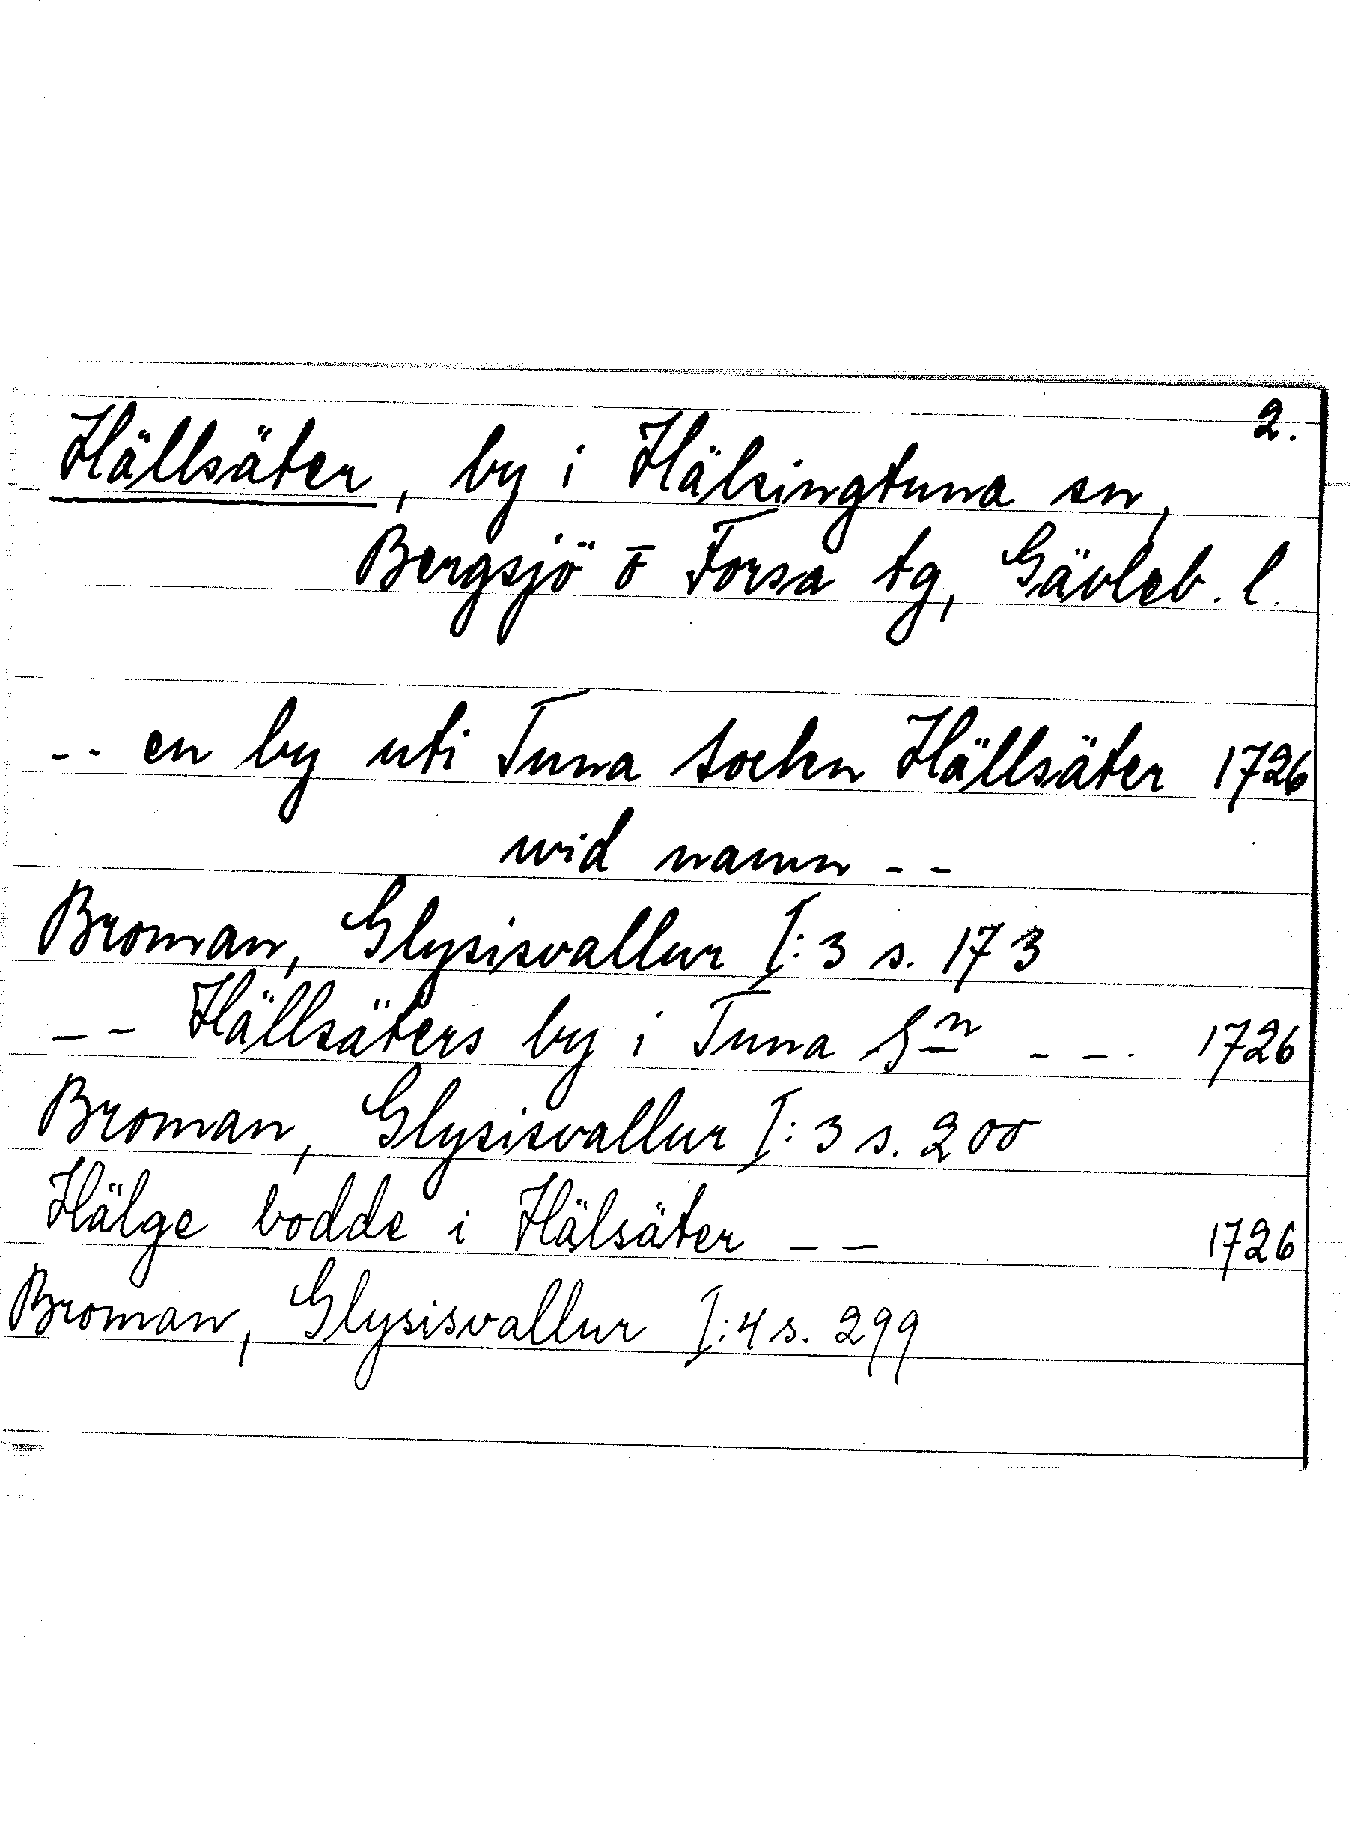 2.
Hällsäter, by i Hälsingtuna sn,
Bergsjö ō Forsa tg, Gävleb. l.
-- en by uti Tuna sochn Hällsäter 1726
wid namn --
Broman, Glysisvallur I:3 s. 173
-- Hällsäters by i Tuna Sn --. 1726
Broman, Glysisvallur I:3 s. 200
Hälge bodde i Hälsäter -- 1726
Broman, Glysisvallur I:4 s. 299